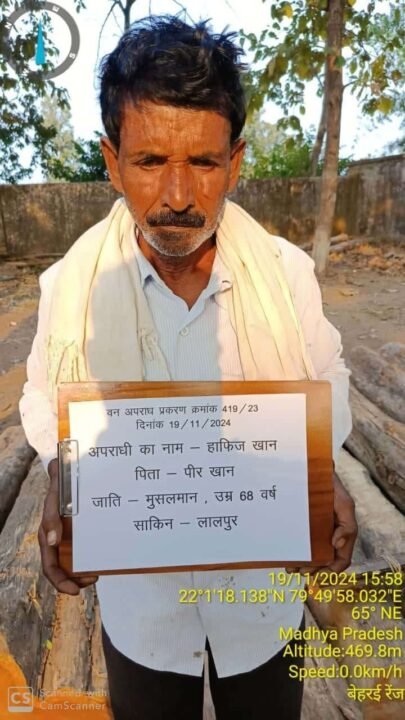 वन अपराध प्रकरण क्रमांक 419/23
दिनांक 19/11/2024
अपराधी का नाम – हाफिज खान
पिता – पीर खान
जाति – मुसलमान , उम्र 68 वर्ष
साकिन – लालपुर
19/11/2024 15:58
22°1'18.138"N 79°49'58.032"E
65° NE
Madhya Pradesh
Altitude:469.8m
Speed:0.0km/h
बेहरई रेंज
CS Scanned with
CamScanner